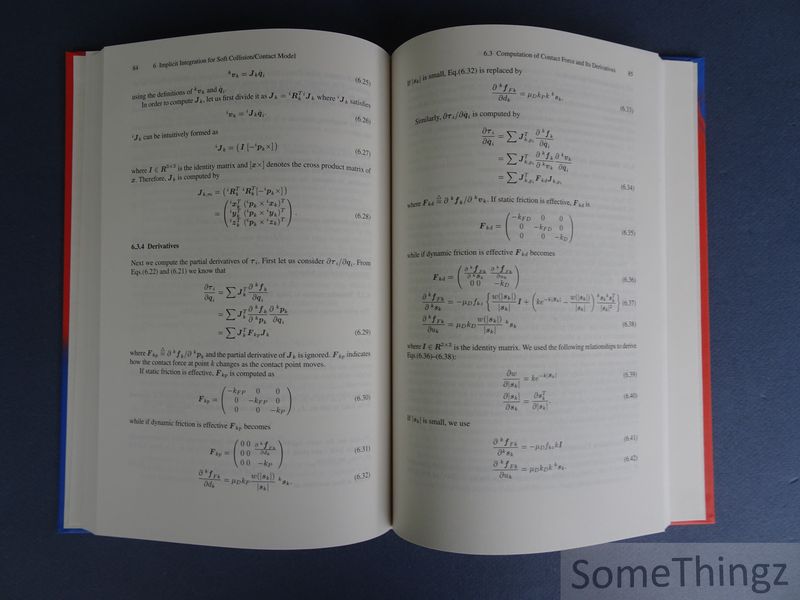 84 6 Implicit Integration for Soft Collision/Contact Model
ᵏvₖ = Jₖq̇, (6.25)
using the definitions of ᵏvₖ and q̇.
In order to compute Jₖ, let us first divide it as Jₖ = ⁱRₖᵀ ⁱJₖ where ⁱJₖ satisfies
ⁱvₖ = ⁱJₖq̇ᵢ. (6.26)
ⁱJₖ can be intuitively formed as
ⁱJₖ = (I [−ⁱpₖ×]) (6.27)
where I ∈ R³ˣ³ is the identity matrix and [x×] denotes the cross product matrix of
x. Therefore, Jₖ is computed by
= (ⁱRₖᵀ ⁱRₖᵀ[−ⁱpₖ×])
(6.28)
6.3.4 Derivatives
Next we compute the partial derivatives of τᵢ. First let us consider ∂τᵢ/∂qᵢ. From
Eqs.(6.22) and (6.21) we know that
∂τᵢ/∂qᵢ = ∑ Jₖᵀ ∂ᵏfₖ/∂qᵢ
= ∑ Jₖᵀ ∂ᵏfₖ/∂ᵏpₖ ∂ᵏpₖ/∂qᵢ
= ∑ JₖᵀFₖₚJₖ (6.29)
where Fₖₚ ≜ ∂ᵏfₖ/∂ᵏpₖ and the partial derivative of Jₖ is ignored. Fₖₚ indicates
how the contact force at point k changes as the contact point moves.
If static friction is effective, Fₖₚ is computed as
Fₖₚ = (−k_FP 0 0
0 −k_FP 0
0 0 −k_P) (6.30)
while if dynamic friction is effective Fₖₚ becomes
Fₖₚ = (0 0 ∂ᵏf_Fk/∂dₖ
0 0
0 0 −k_P) (6.31)
∂ᵏf_Fk/∂dₖ = μ_D k_P w(|sₖ|)/|sₖ| ᵏsₖ. (6.32)
6.3 Computation of Contact Force and Its Derivatives 85
If |sₖ| is small, Eq.(6.32) is replaced by
∂ᵏf_Fk/∂dₖ = μ_D k_P k ᵏsₖ. (6.33)
Similarly, ∂τᵢ/∂q̇ᵢ is computed by
∂τᵢ/∂q̇ᵢ = ∑ Jᵀ ∂ᵏfₖ/∂q̇ᵢ
= ∑ Jᵀ ∂ᵏfₖ/∂ᵏvₖ ∂ᵏvₖ/∂q̇ᵢ
(6.34)
where F_kd ≜ ∂ᵏfₖ/∂ᵏvₖ. If static friction is effective, F_kd is
F_kd = (−k_FD 0 0
0 −k_FD 0
0 0 −k_D) (6.35)
while if dynamic friction is effective F_kd becomes
0 0 −k_D (6.36)
(6.37)
= μ_D k_D w(|sₖ|)/|sₖ| ᵏsₖ (6.38)
where I ∈ R²ˣ² is the identity matrix. We used the following relationships to derive
Eq.(6.36)–(6.38):
∂w/∂|sₖ| = ke^(−k|sₖ|) (6.39)
∂|sₖ|/∂sₖ = (6.40)
If |sₖ| is small, we use
(6.41)
= μ_D k_D k ᵏsₖ. (6.42)
SomeThingz